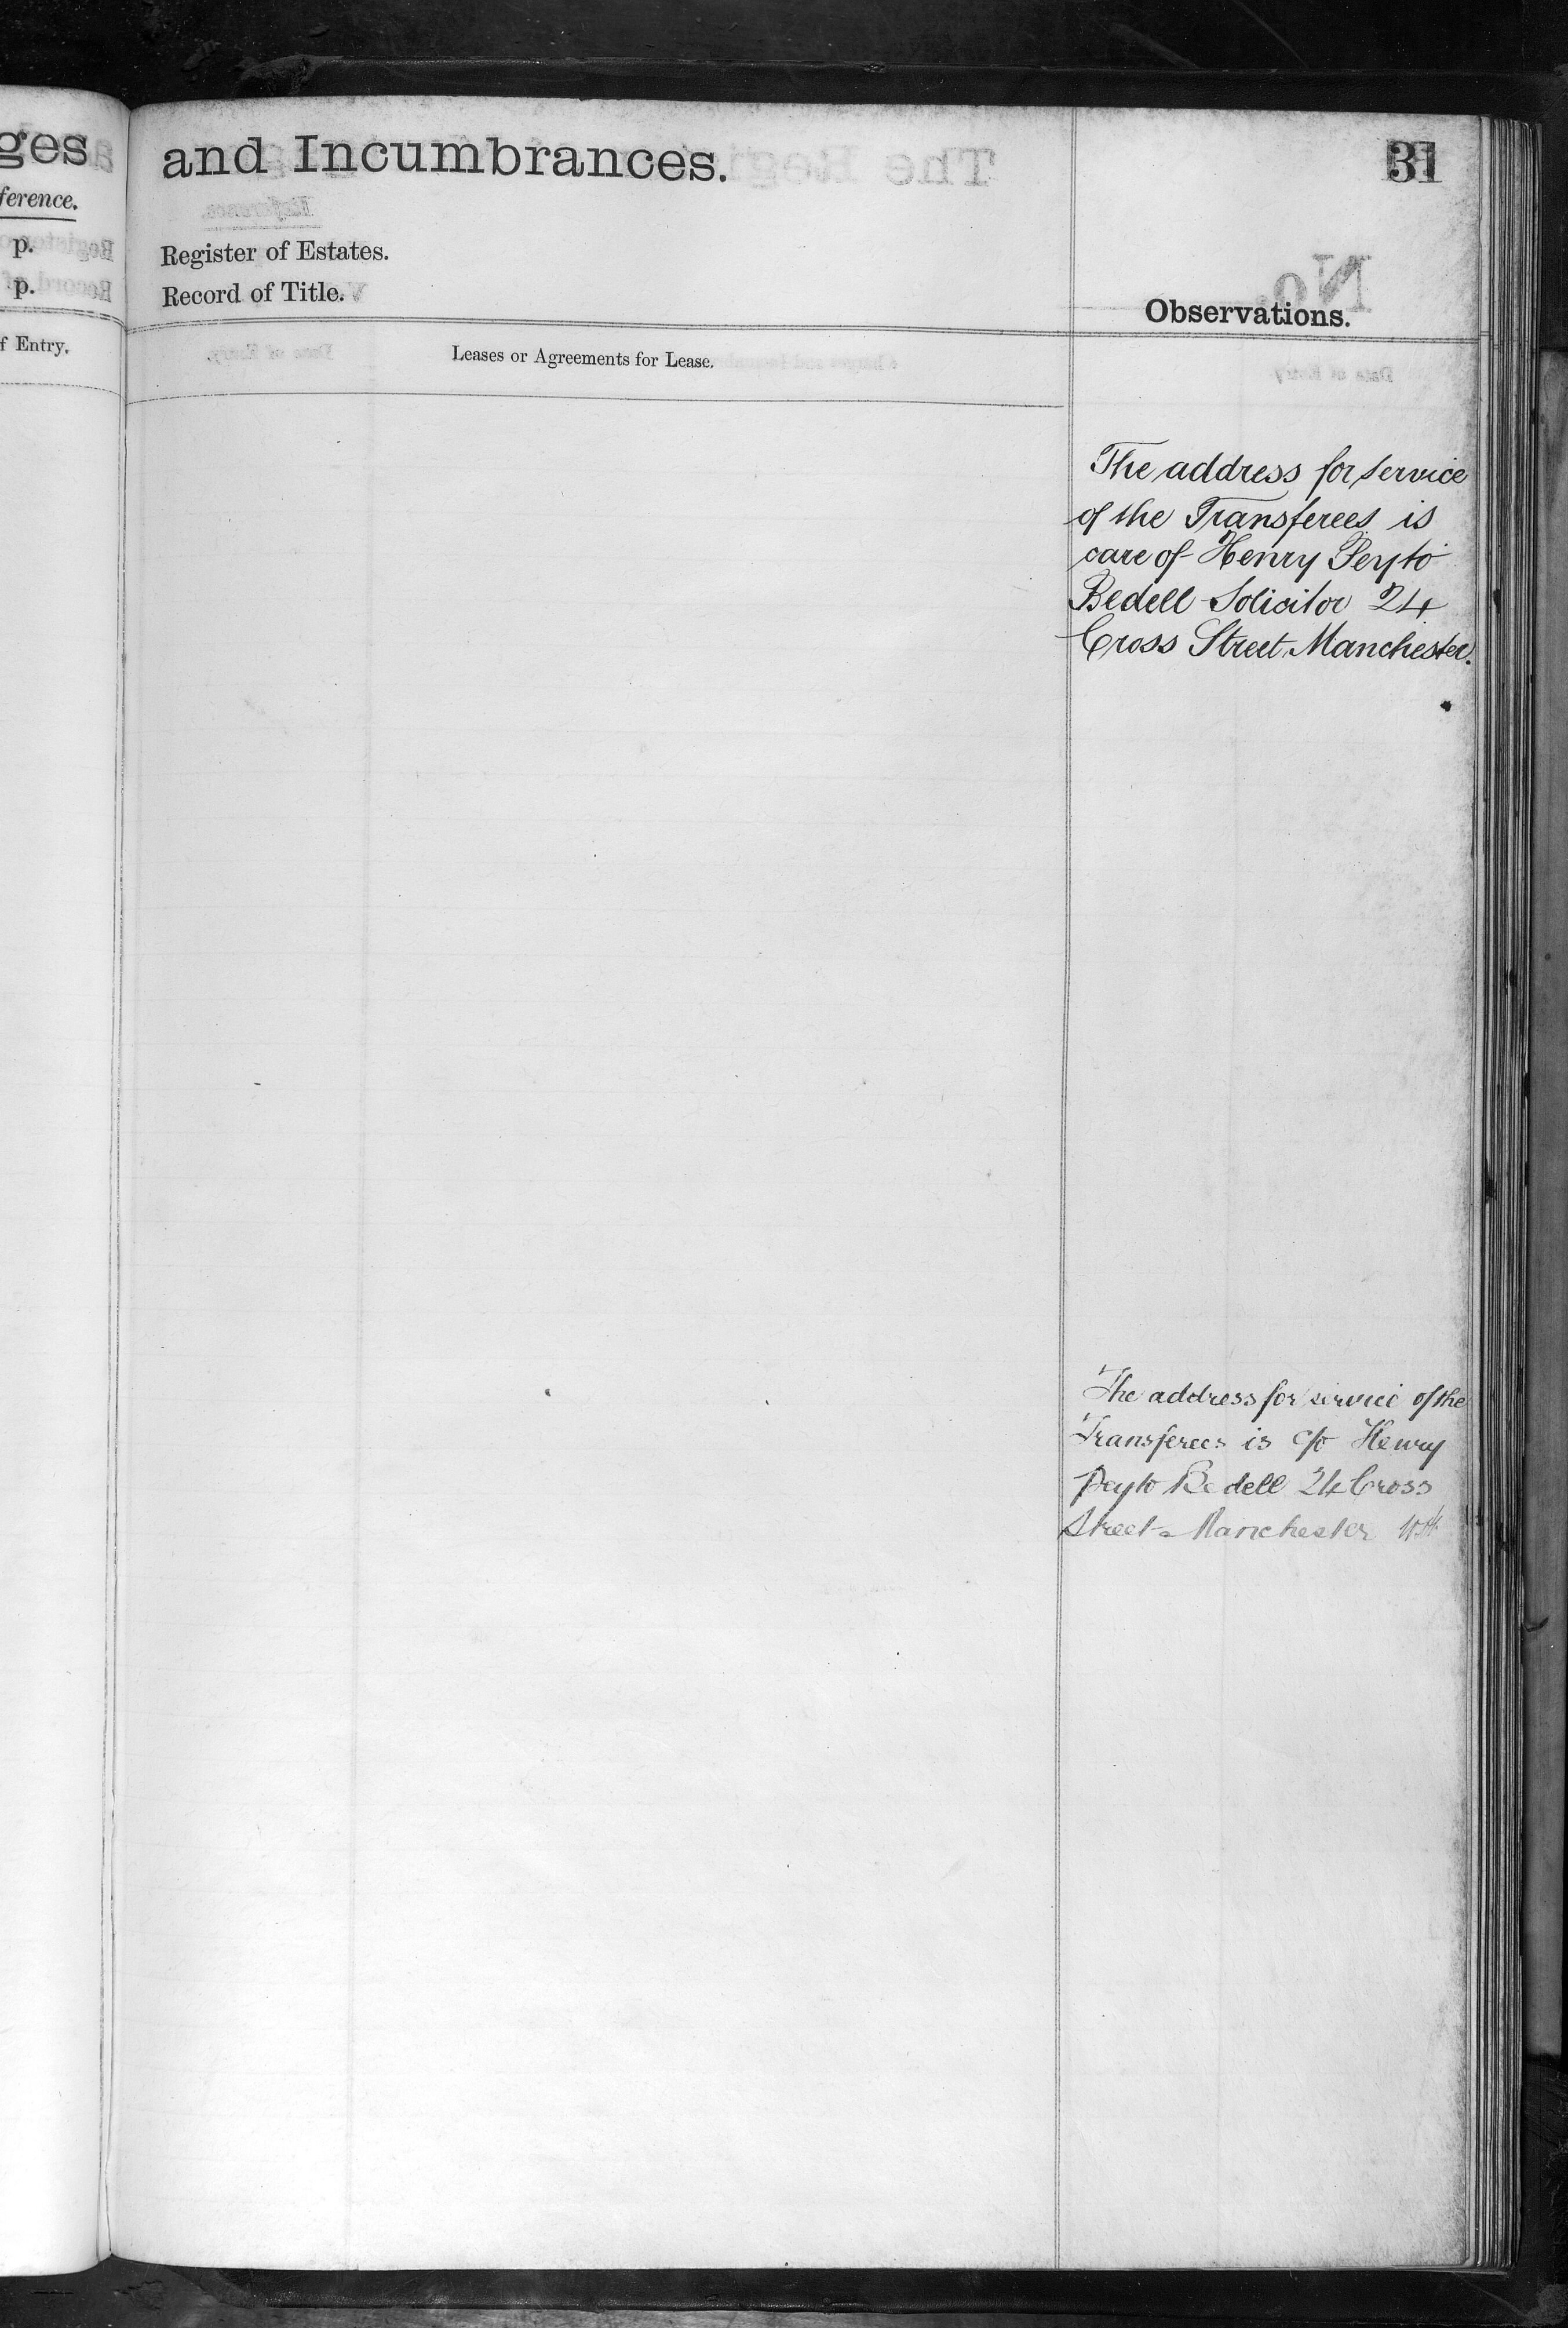 ges
ference.
p.
p.
f Entry.
and Incumbrances.
31
Register of Estates.
Record of Title.
Observations.
Leases or Agreements for Lease.
The address for service
of the Transferees is
care of Henry Peyto
Bedell Solicitor 24
Cross Street Manchester.
The address for service of the
Transferees is c/o Henry
Peyto Bedell 24 Cross
Street Manchester